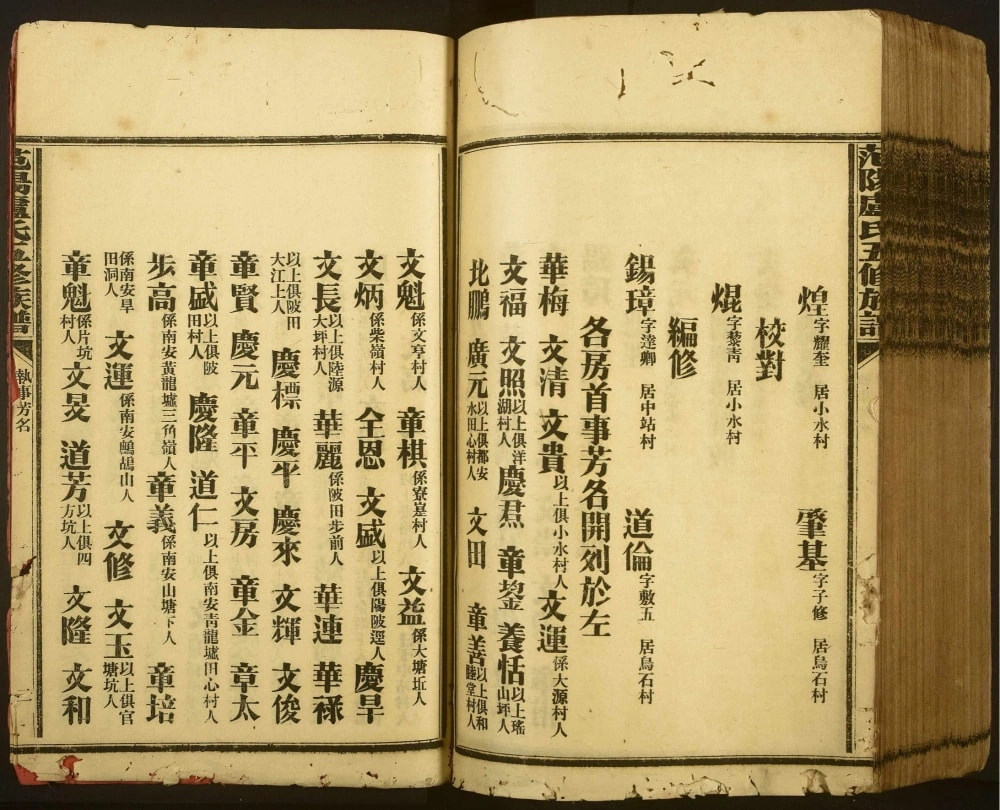 范陽盧氏五修族譜
煌字耀奎 居小水村 肇基字子修 居烏石村
校對
焜字藜靑 居小水村
編修
錫璋字達卿 居中站村 道倫字敷五 居烏石村
各房首事芳名開列於左
華梅 文清 文貴以上俱小水村人 文運係大源村人
文福 文照以上俱洋湖村人 慶焄 章鋆 養恬以上瑤山坪人
北鵬 廣元以上俱都安水田心村人 文田 章善以上俱和睦堂村人
文魁係文亨村人 章棋係寮嵩村人 文益係大塘坵人
文炳係柴嶺村人 全恩 文盛以上俱陽陂逕人 慶旱
文長以上俱陸源大坪村人 華麗係陂田步前人 華連 華祿
以上俱陂田大江上人 慶標 慶平 慶來 文輝 文俊
章賢 慶元 章平 文房 章金 章太
章盛以上俱陂田村人 慶隆 道仁以上俱南安靑龍墟田心村人
步高係南安黃龍墟三角嶺人 章義係南安山塘下人 章培
係南安旱田洞人 文運係南安鷓鴣山人 文修 文玉以上俱官塘坑人
章魁係片坑村人 文炅 道芳以上俱四方坑人 文隆 文和
范陽盧氏五修族譜 執事芳名